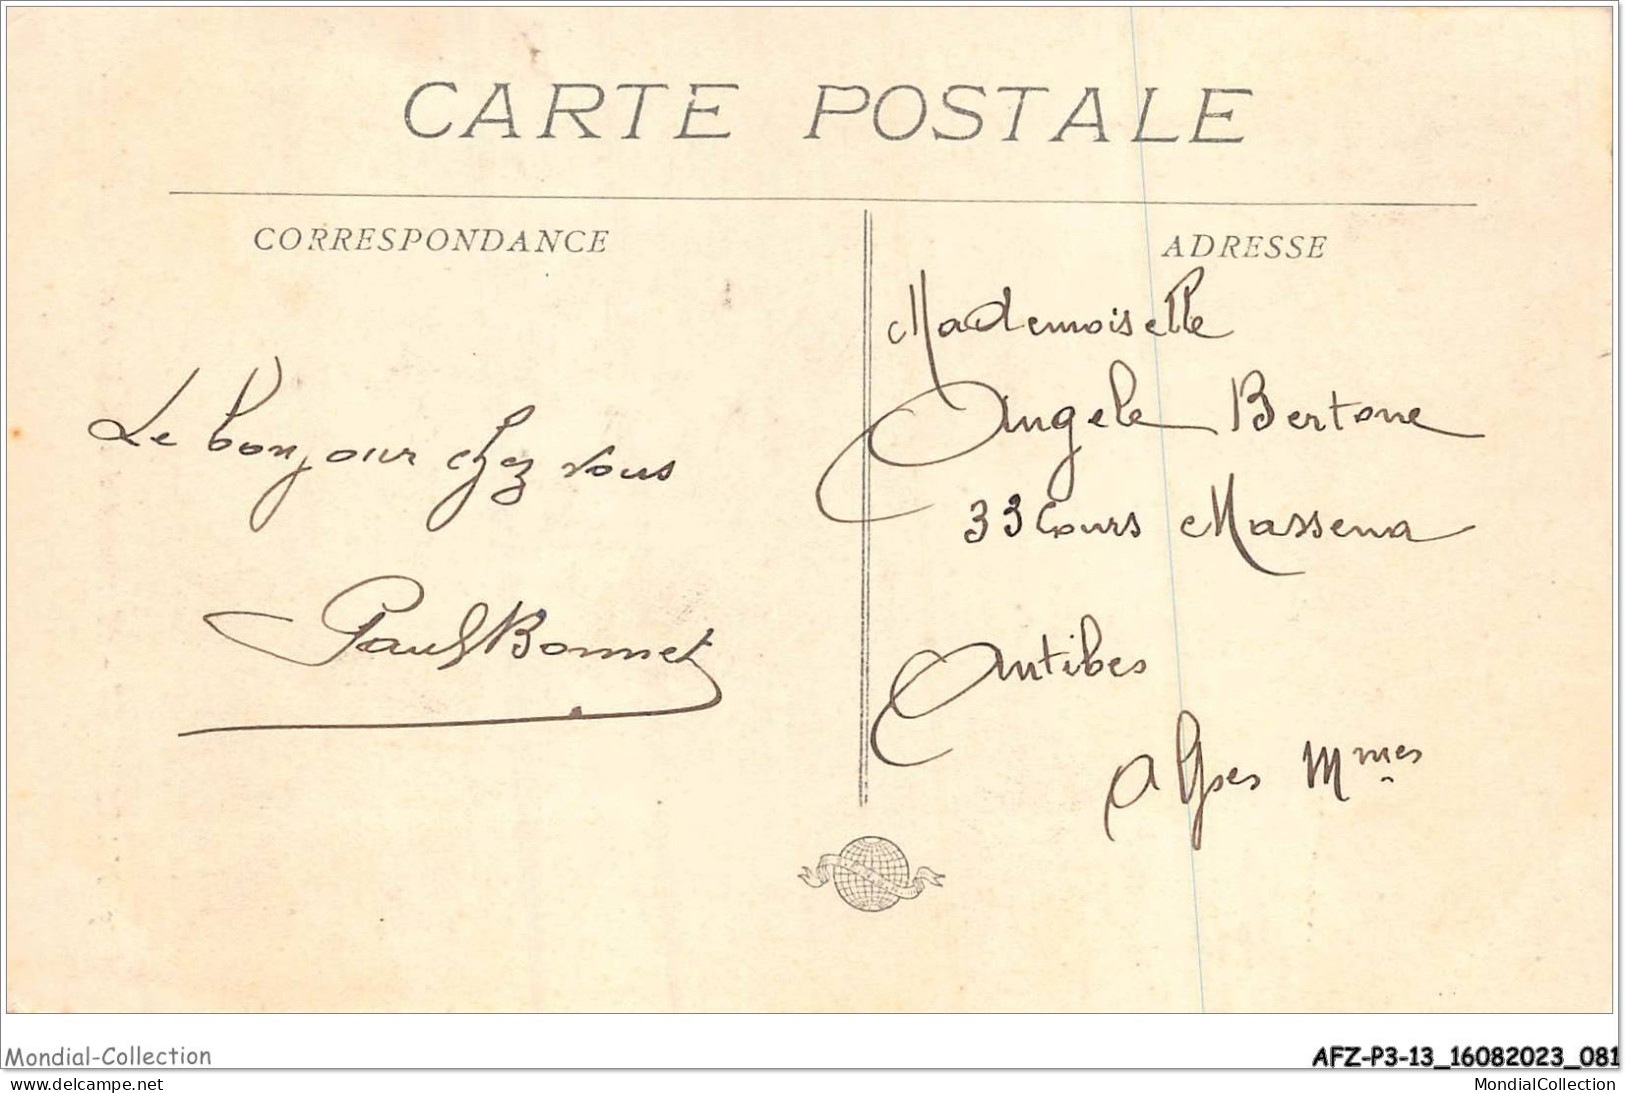 CARTE POSTALE
CORRESPONDANCE
ADRESSE
Le bonjour chez vous
Paul Bonnet
Mademoiselle
Angele Bertone
33 Cours Massena
Antibes
Alpes Mmes
Mondial-Collection
AFZ-P3-13_16082023_081
www.delcampe.net
MondialCollection